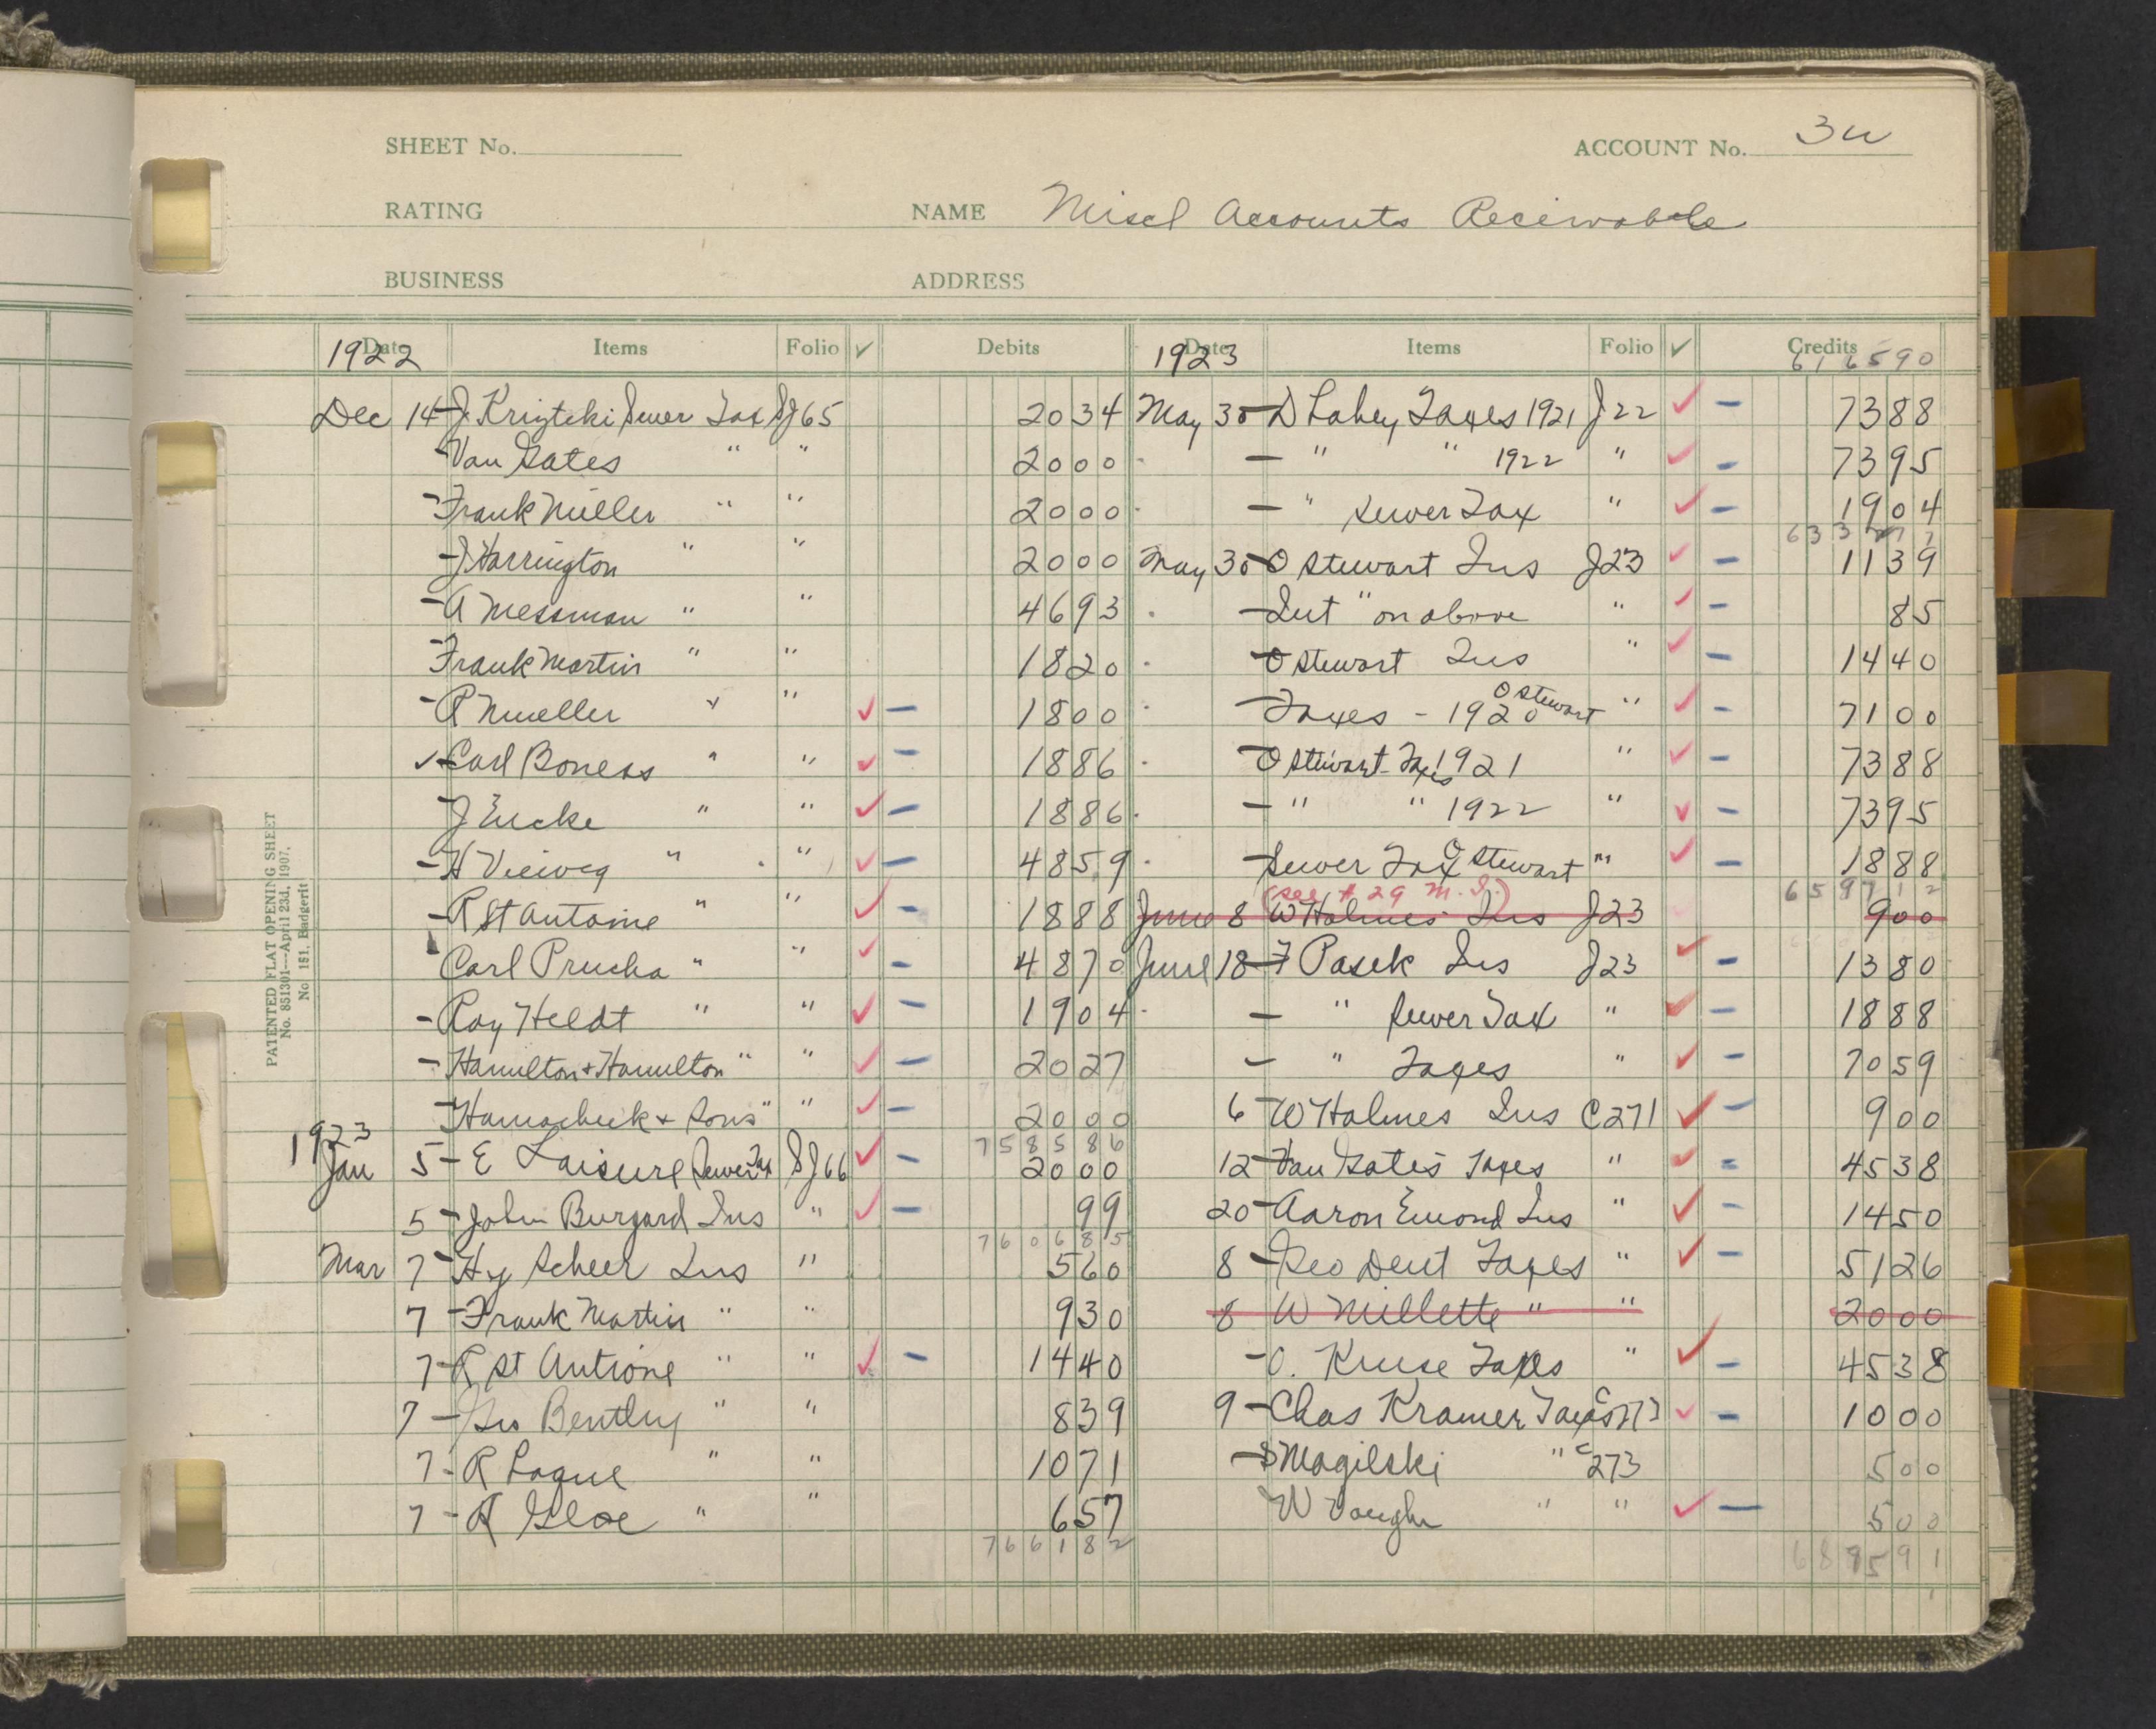 SHEET No.
ACCOUNT No. 3w
RATING
NAME Miscl Accounts Receivable
BUSINESS
ADDRESS
Date Items Folio ✓ Debits Date Items Folio ✓ Credits
1922 1923 616590
Dec 14 - J. Krizteki Sewer Tax SJ65 2034 May 30 - D Lahey Taxes 1921 J22 ✓ - 7388
- Van Gates " " 2000 - " " 1922 " ✓ - 7395
- Frank Miller " " 2000 - " Sewer Tax " ✓ - 1904
6332
- J Harrington " " 2000 May 30 - O Stewart Ins J23 ✓ - 1139
- A Messman " " 4693 - Int " on above " ✓ - 85
- Frank Martin " " 1820 - O Stewart Ins " ✓ - 1440
- R Mueller " " ✓ - 1800 - Taxes - 1920 O Stewart " ✓ - 7100
✓ - Carl Boness " " ✓ - 1886 - O Stewart Taxes 1921 " ✓ - 7388
- J Eucke " " ✓ - 1886 - " " 1922 " ✓ - 7395
- H Vieweg " " ✓ - 4859 - Sewer Tax O Stewart " ✓ - 1888
(see # 29 M. I.) 659712
- R St Antoine " " ✓ - 1888 June 8 W Holmes Ins J23 900
Carl Prucha " " ✓ - 4870 June 18 - F Pasek Ins J23 ✓ - 1380
- Ray Heldt " " ✓ - 1904 - " Sewer Tax " ✓ - 1888
- Hamilton + Hamilton " " ✓ - 2027 - " Taxes " ✓ - 7059
- Hamacheck + Sons " " ✓ - 2000 6 - W Holmes Ins C271 ✓ - 900
1923 758586
Jan 5 - E Laisure Sewer Tax SJ66 ✓ - 2000 12 - Van Gates Taxes " ✓ - 4538
5 - John Burgard Ins " ✓ - 99 20 - Aaron Emond Ins " ✓ - 1450
760685
Mar 7 - Hy Scheer Ins " 560 8 - Geo Dent Taxes " ✓ - 5126
7 - Frank Martin " " 930 8 W Millette " " 2000
7 - R St Antione " " ✓ - 1440 - O. Kruse Taxes " ✓ - 4538
7 - Geo Bentley " " 839 9 - Chas Kramer Taxes C273 ✓ - 1000
7 - R Lague " " 1071 - S Magilski " C273 500
7 - R Gloe " " 657 W Vaughn " " ✓ - 500
766182 689591
PATENTED FLAT OPENING SHEET
No. 851301—April 23d, 1907.
No 151, Badgerit